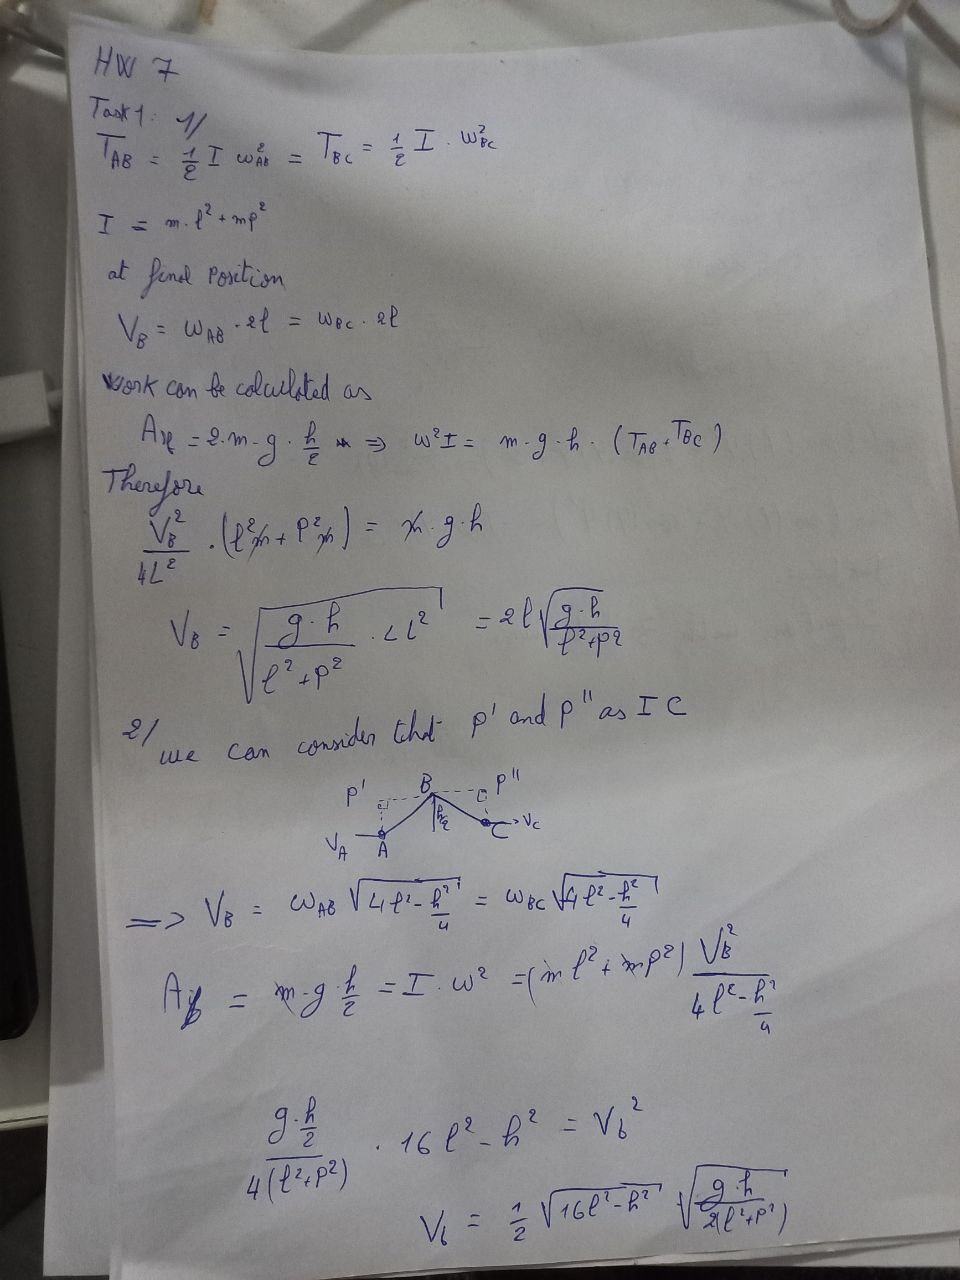 HW 7
Task 1: 1/
T_AB = 1/2 I ω_AB² = T_BC = 1/2 I · ω_BC²
I = m·l² + mp²
at final position
V_B = ω_AB · 2l = ω_BC · 2l
Work can be calculated as
= 2·m·g · h/2 ⇒ ω²I = m·g·h · (T_AB + T_BC)
Therefore
V_B²/4L² · (l²m + P²m) = m·g·h
V_B = √(g·h/(l²+P²) · 4L²) = 2l √(g·h/(l²+P²))
2/ we can consider that P' and P'' as I C
P' B P''
h/2
V_A A C V_C
=> V_B = ω_AB √(4l² - h²/4) = ω_BC √(4l² - h²/4)
= m·g·h/2 = I·ω² = (ml² + mp²) V_B²/(4l² - h²/4)
g·h/2 / 4(l²+P²) · 16l² - h² = V_b²
V_b = 1/2 √(16l² - h²) √(g·h/2(l²+P²))